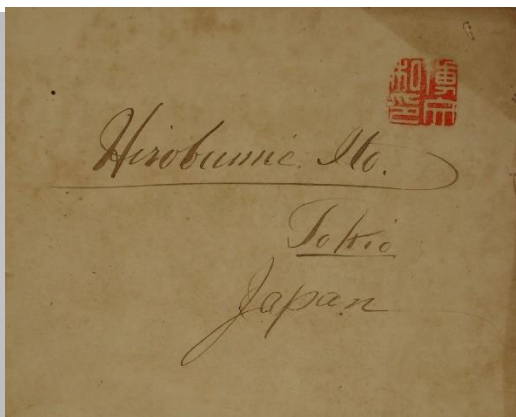 Hirobumi Ito.
Tokio
Japan